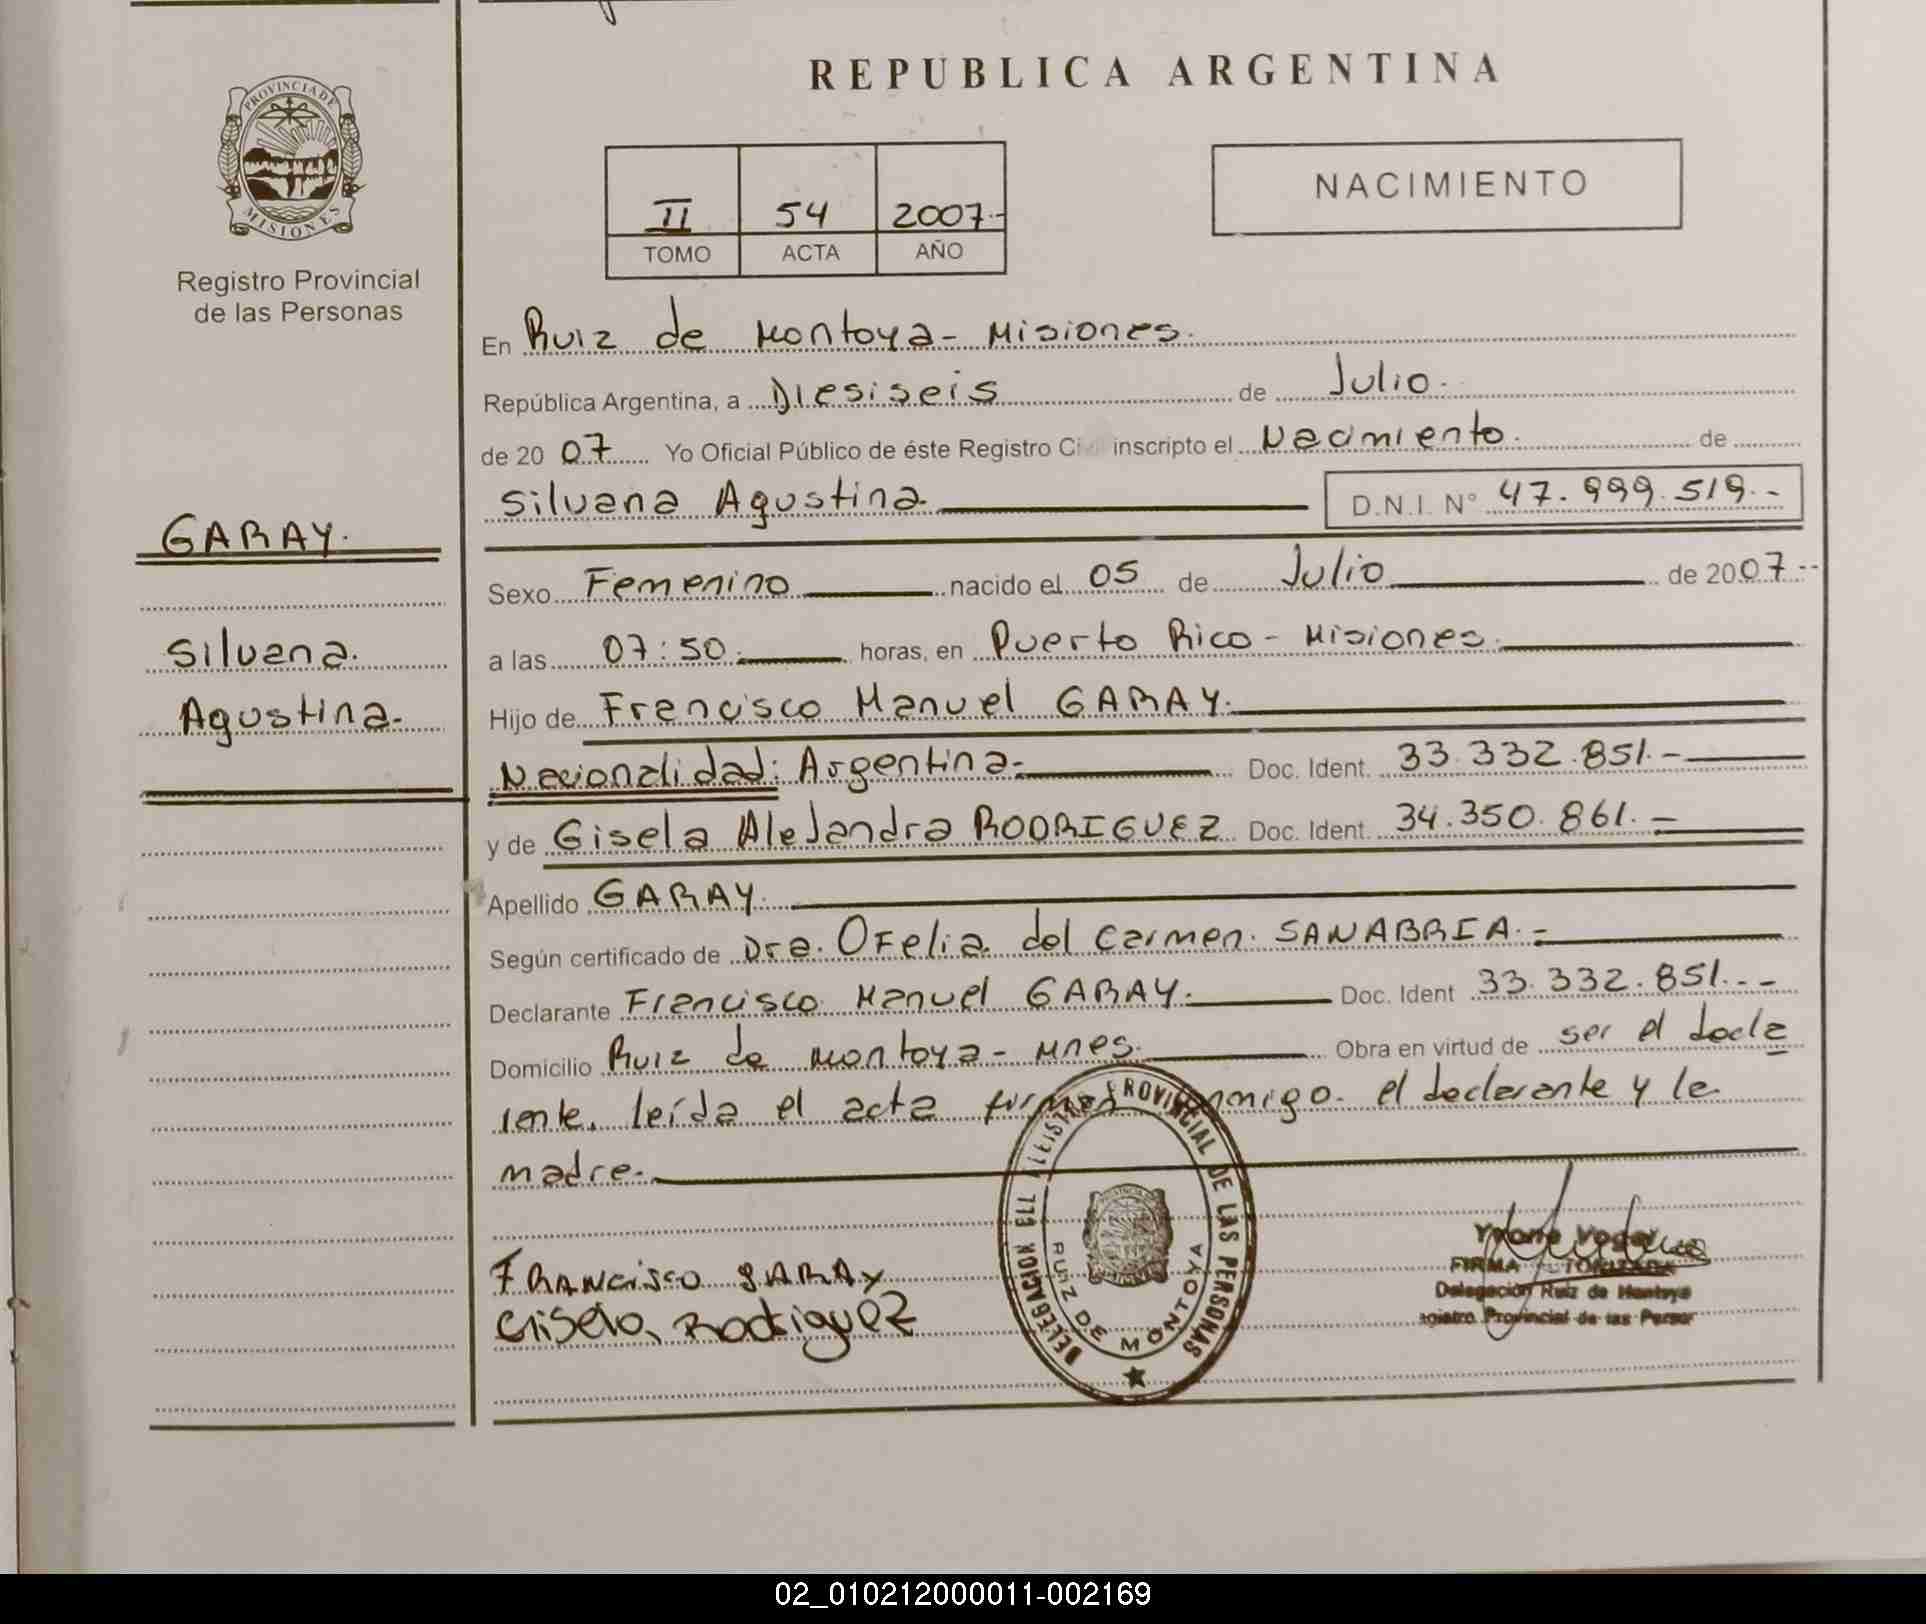 REPUBLICA ARGENTINA
PROVINCIA DE
MISIONES
Registro Provincial
de las Personas
II 54 2007.-
TOMO ACTA AÑO
NACIMIENTO
GARAY.
Silvana.
Agustina.
En Ruiz de Montoya - Misiones.
República Argentina, a Diesiseis de Julio.
de 20 07 Yo Oficial Público de éste Registro Ci inscripto el Nacimiento. de
Silvana Agustina. D.N.I. N° 47.999.519.-
Sexo Femenino nacido el 05 de Julio de 2007.-
a las 07:50. horas, en Puerto Rico - Misiones.
Hijo de Francisco Manuel GARAY.
Nacionalidad: Argentina. Doc. Ident. 33.332.851.-
y de Gisela Alejandra RODRIGUEZ Doc. Ident. 34.350.861.-
Apellido GARAY.
Según certificado de Dra. Ofelia del Carmen. SANABRIA.-
Declarante Francisco Manuel GARAY. Doc. Ident 33.332.851.--
Domicilio Ruiz de Montoya - Mnes. Obra en virtud de ser el decla
rante. leída el acta firman conmigo. el declarante y la
madre.
FRANCISCO GARAY
Gisela Rodriguez
DELEGACION REGISTRO PROVINCIAL DE LAS PERSONAS
RUIZ DE MONTOYA
FIRMA AUTORIZADA
Delegación Ruiz de Montoya
Registro Provincial de las Person
02_010212000011-002169